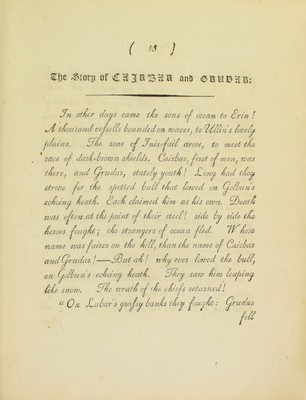 ( 13 )
The Story of CAIRBAR and GRUDAR:
In other days came the sons of ocean to Erin!
A thousand vessells bounded on waves, to Ullin's lovely
plains. The sons of Inis-fail arose, to meet the
race of dark-brown shields. Cairbar, first of men, was
there, and Grudar, stately youth! Long had they
strove for the spotted bull that lowed on Golbun's
echoing heath. Each claimed him as his own. Death
was often at the point of their steel! side by side the
heroes fought; the strangers of ocean fled. Whose
name was fairer on the hill, than the name of Cairbar
and Grudar!—But ah! why ever lowed the bull,
on Golbun's echoing heath. They saw him leaping
like snow. The wrath of the chiefs returned!
"On Lubar's grassy banks they fought: Grudar
fell